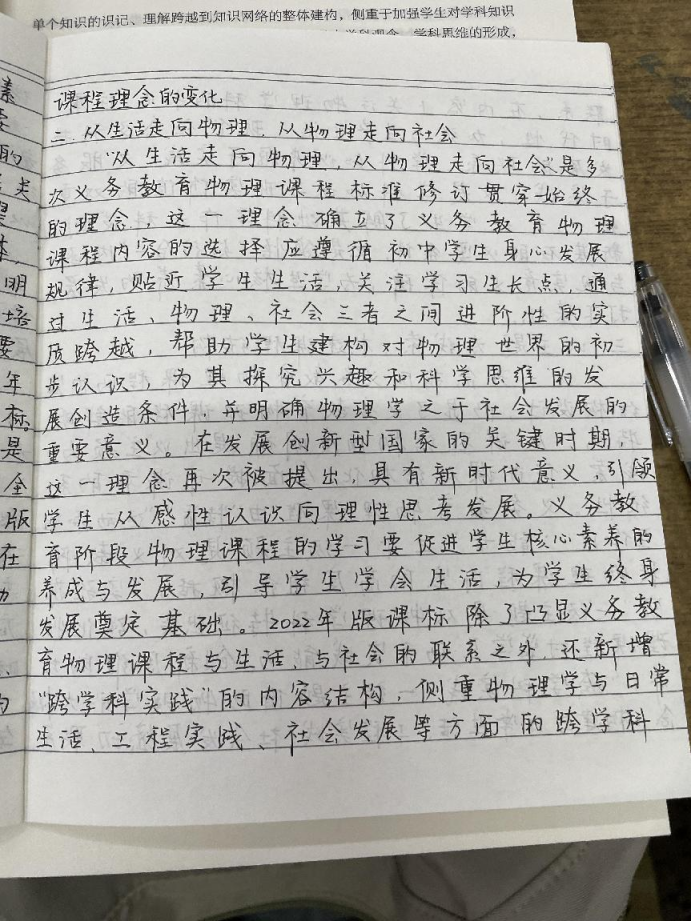 单个知识的识记、理解跨越到知识网络的整体建构，侧重于加强学生对学科知识
学科观念、学科思维的形成，
课程理念的变化
二、从生活走向物理，从物理走向社会
"从生活走向物理，从物理走向社会"是多
次义务教育物理课程标准修订贯穿始终
的理念，这一理念确立了义务教育物理
课程内容的选择应遵循初中学生身心发展
规律，贴近学生生活，关注学习生长点，通
过生活、物理、社会三者之间进阶性的实
质跨越，帮助学生建构对物理世界的初
步认识，为其探究兴趣和科学思维的发
展创造条件，并明确物理学之于社会发展的
重要意义。在发展创新型国家的关键时期，
这一理念再次被提出，具有新时代意义，引领
学生从感性认识向理性思考发展。义务教
育阶段物理课程的学习要促进学生核心素养的
养成与发展，引导学生学会生活，为学生终身
发展奠定基础。2022年版课标除了凸显义务教
育物理课程与生活、与社会的联系之外，还新增
"跨学科实践"的内容结构，侧重物理学与日常
生活、工程实践、社会发展等方面的跨学科
素
的
关
明
培
要
年
标
是
全
版
在